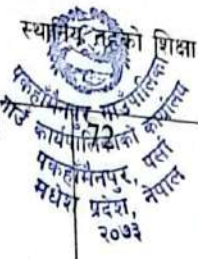 स्थानिय तहको शिक्षा
पकाहाँमैनपुर गाउँपालिका
गाउँ कार्यपालिकाको कार्यालय
72
पकहाँमैनपुर, पर्सा
मधेश प्रदेश, नेपाल
२०७३